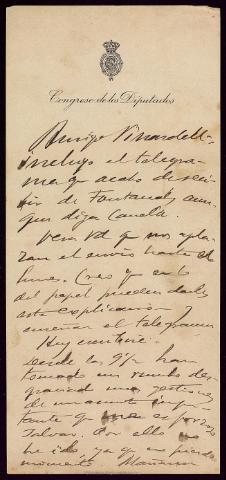 Congreso de los Diputados
Amigo Vinardell:
Incluyo el telegra-
ma que acabo de reci-
bir de Fontanals aun-
que diga Canela.
Vera Vd que no apla-
zan el envio hasta el
lunes. Creo que en lo
del papel pueden darle
esta explicacion y
enseñar el telegrama
Hoy contesté.
Desde las 9 y han
tomado un rumbo des-
graciad mis gestiones
de un asunto impor-
tante que me esfuerzo
salvar. Por ello no
he ido, ya que no pierdo
momento. Mañana